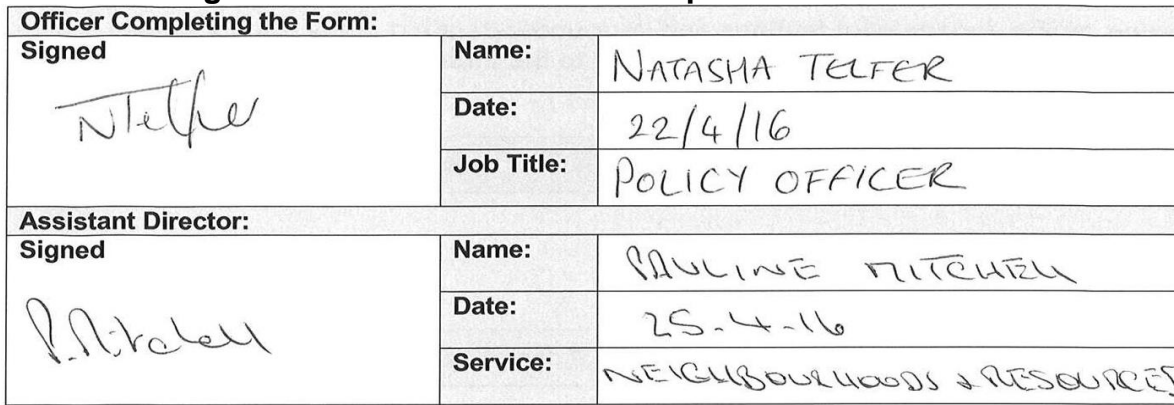 Officer Completing the Form:
Signed
NTelfer
Name:
NATASHA TELFER
Date:
22/4/16
Job Title:
POLICY OFFICER
Assistant Director:
Signed
P. Mitchell
Name:
PAULINE MITCHELL
Date:
25-4-16
Service:
NEIGHBOURHOODS & RESOURCES